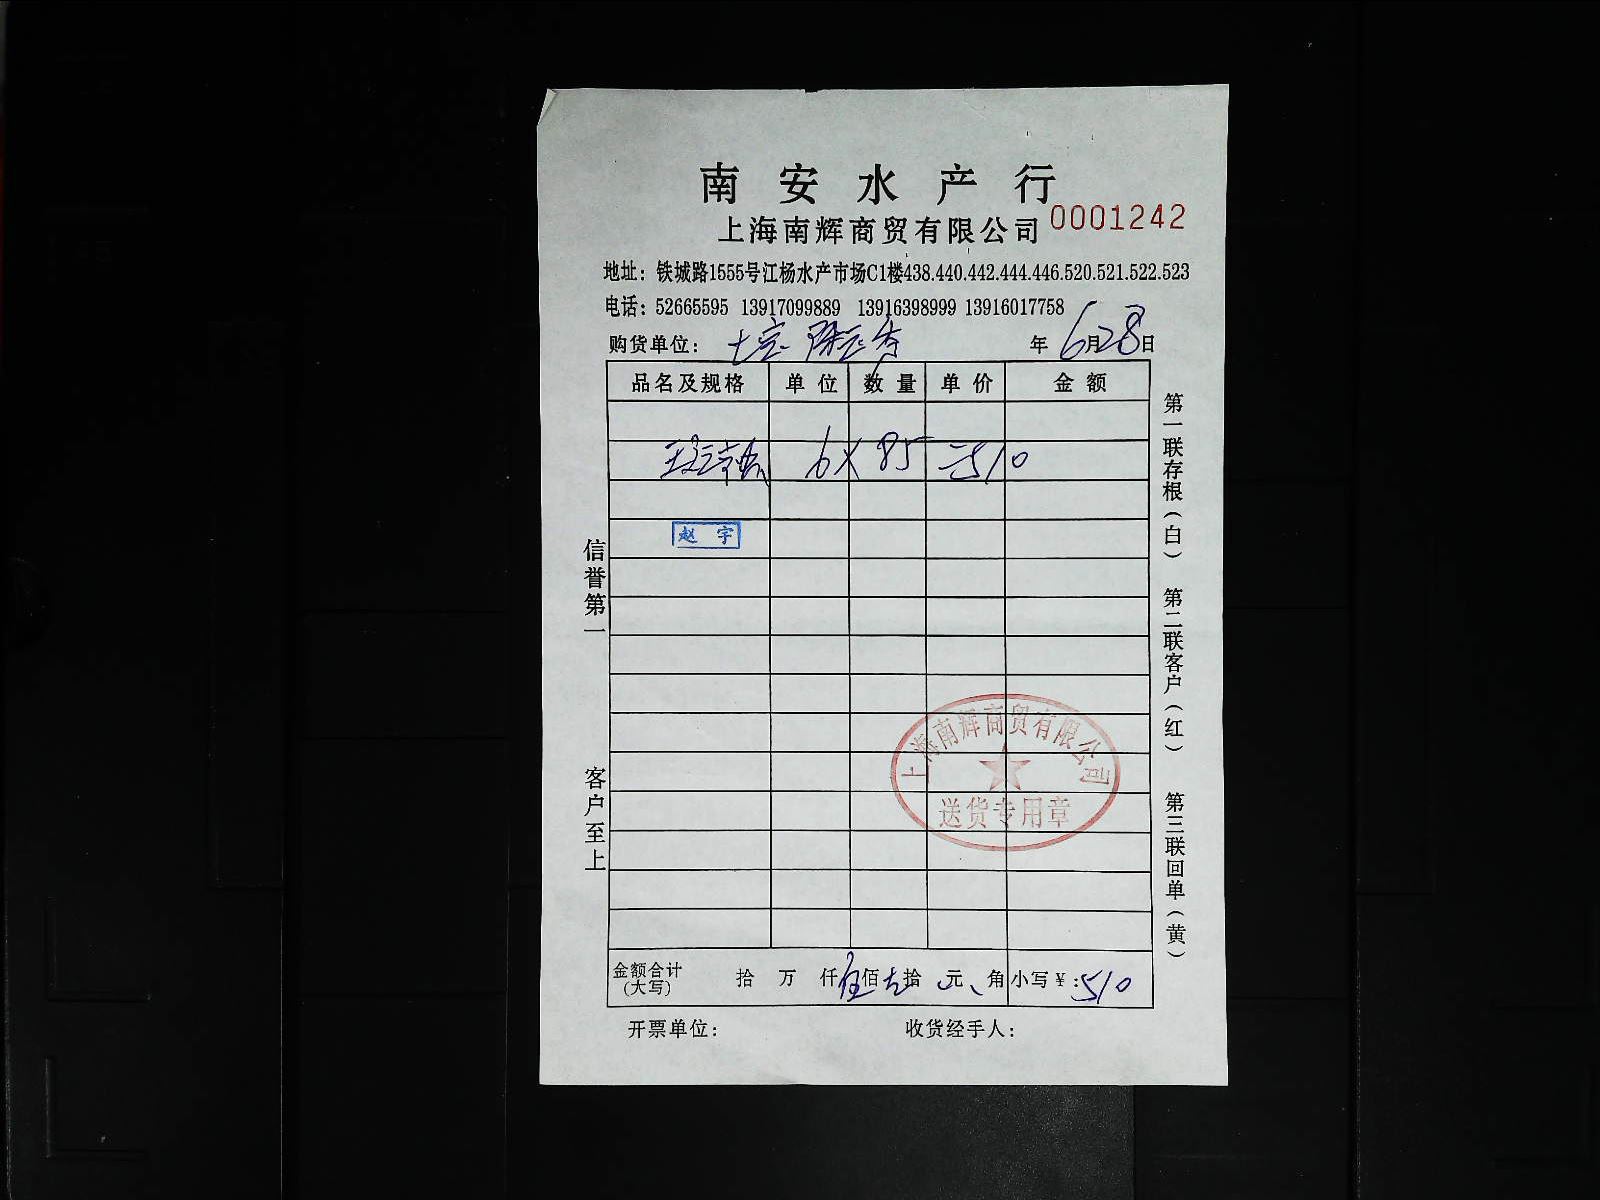 南安水产行
上海南辉商贸有限公司 0001242
地址：铁城路1555号江杨水产市场C1楼438.440.442.444.446.520.521.522.523
电话：52665595 13917099889 13916398999 13916017758
购货单位： 年6月28日
品名及规格 单位 数量 单价 金额
6 X 85 =510
赵宇
信誉第一
客户至上
第一联存根（白）
第二联客户（红）
第三联回单（黄）
上海南辉商贸有限公司
送货专用章
金额合计（大写） 拾 万 仟伍佰 拾 元 角 小写￥：510
开票单位： 收货经手人：